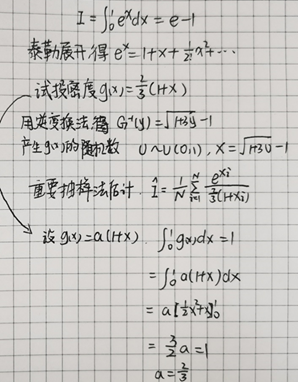 I = ∫₀¹ eˣdx = e-1
泰勒展开得 eˣ = 1+x+½x²+⋯
试投密度g(x) = ⅔(1+x)
用逆变换法得 G⁻¹(y) = √(1+3y) - 1
产生g(·)的随机数 U~U(0,1), X = √(1+3U) - 1
重要抽样法估计. Î = 1/N ∑ᵢ₌₁ᴺ e^(xᵢ) / (⅔(1+xᵢ))
设 g(x) = a(1+x). ∫₀¹ g(x)dx = 1
= ∫₀¹ a(1+x)dx
= a[½x²+x]₀¹
= 3/2 a = 1
a = ⅔